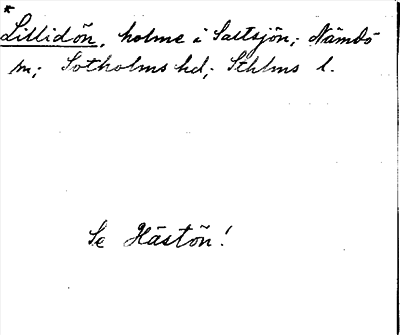 *
Lillidön, holme i Saltsjön; Nämdö
sn; Sotholms hd; Sthlms l.
Se Hästön!